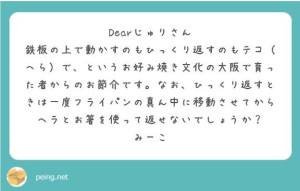 Dearじゅりさん
鉄板の上で動かすのもひっくり返すのもテコ（
へら）で、というお好み焼き文化の大阪で育っ
た者からのお節介です。なお、ひっくり返すと
きは一度フライパンの真ん中に移動させてから
ヘラとお箸を使って返せないでしょうか？
みーこ
peing.net